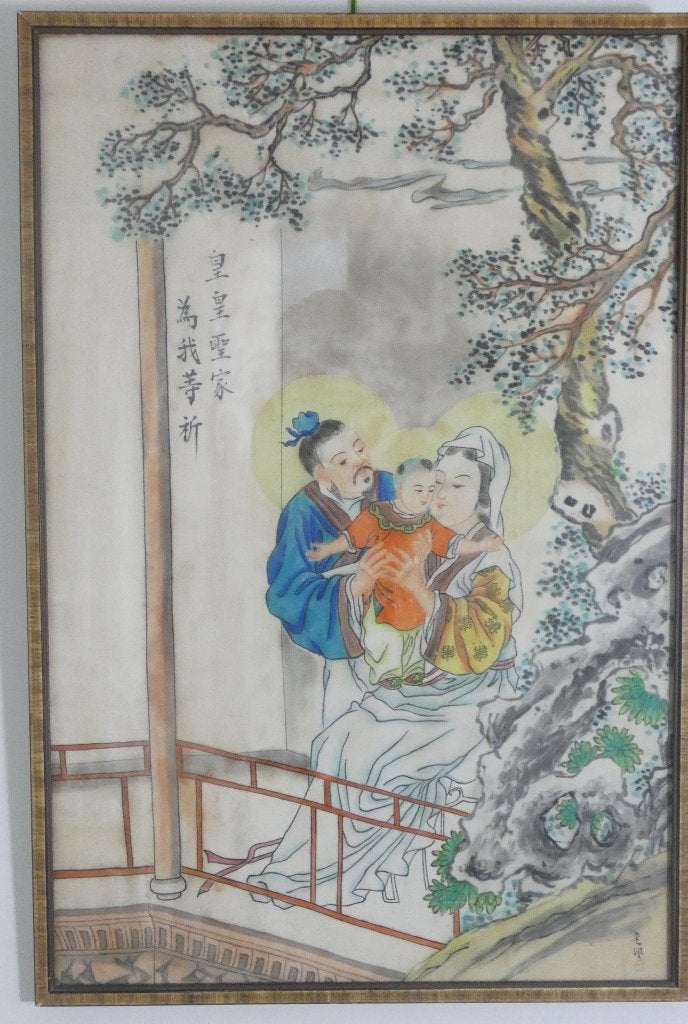 皇皇聖家
為我等祈